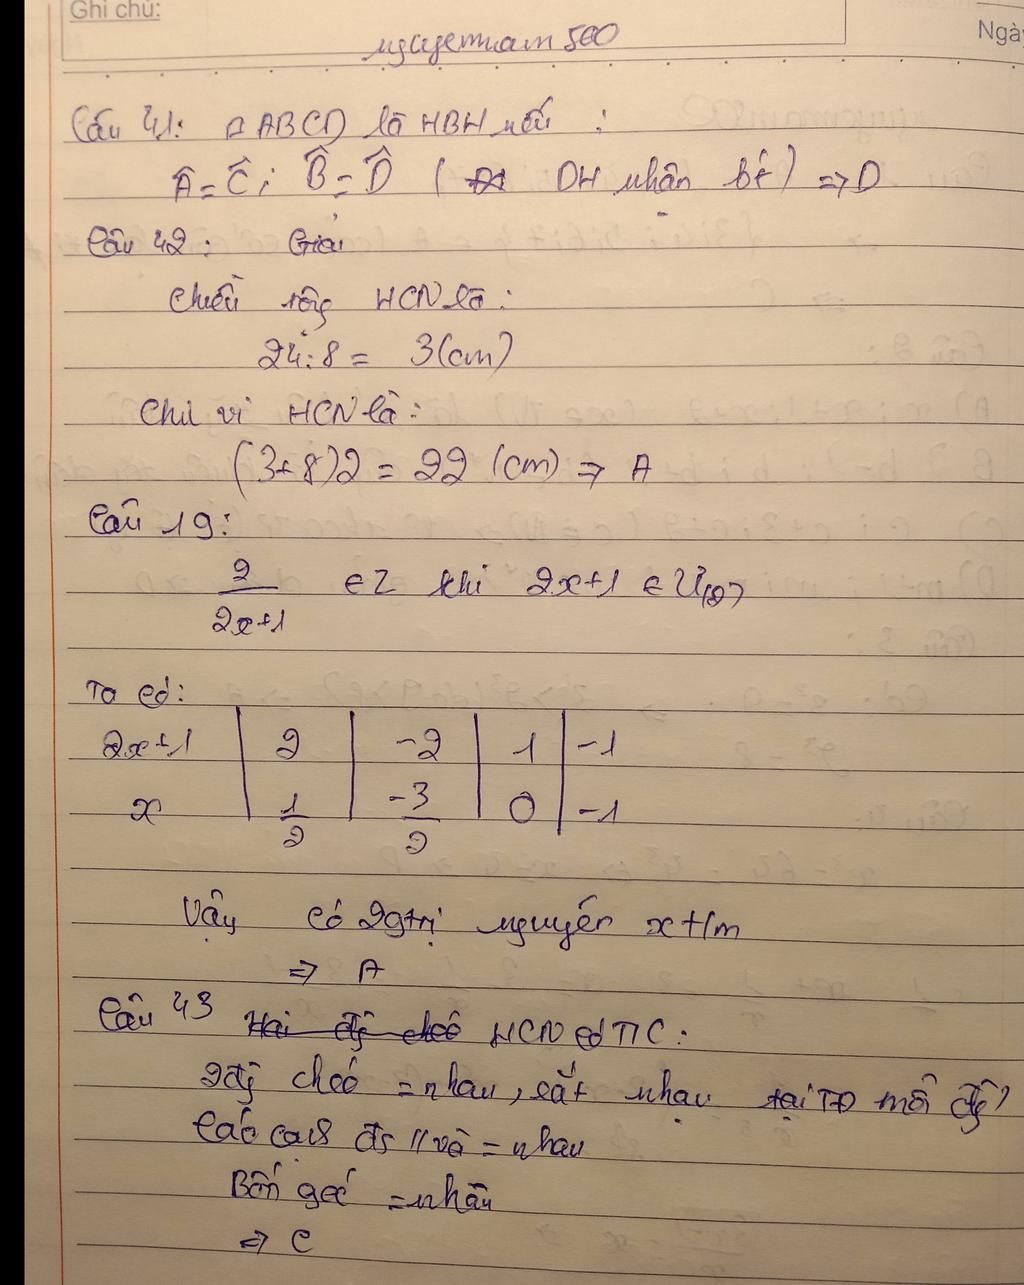 Ghi chú:
Ngày
nguyennam500
Câu 41: ABCD là HBH nếu :
Â = Ĉ ; B̂ = D̂ ( DH nhận bt) => D
Câu 42: Giải
Chiều rộng HCN là:
24:8 = 3(cm)
Chu vi HCN là:
(3+8)2 = 22 (cm) => A
Câu 19:
2/(2x+1) ∈ Z khi 2x+1 ∈ Ư(2)
Ta có:
2x+1 | 2 | -2 | 1 | -1
x | 1/2 | -3/2 | 0 | -1
Vậy có 2 gtrị nguyên x t/m
=> A
Câu 43 HCN có T/C:
2 đg chéo = nhau, cắt nhau tại TĐ mỗi đg
Các cạh đs // và = nhau
Bốn góc = nhau
=> C